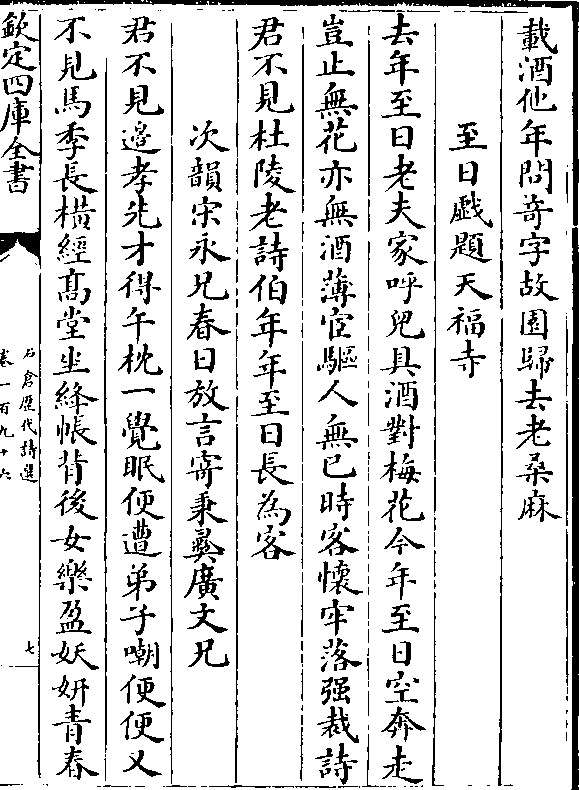 載酒他年問竒字故園歸去老桑麻
至日戲題天福寺
去年至日老夫家呼兒具酒對梅花今年至日空奔走
豈止無花亦無酒薄宦驅人無已時客懷牢落强裁詩
君不見杜陵老詩伯年年至日長為客
次韻宋永兄春日放言寄秉彛廣文兄
君不見邉孝先才得午枕一覺眠便遭弟子嘲便便又
不見馬季長横經髙堂坐絳帳背後女樂盈妖妍青春
欽定四庫全書
石倉歴代詩選
卷一百九十六
七